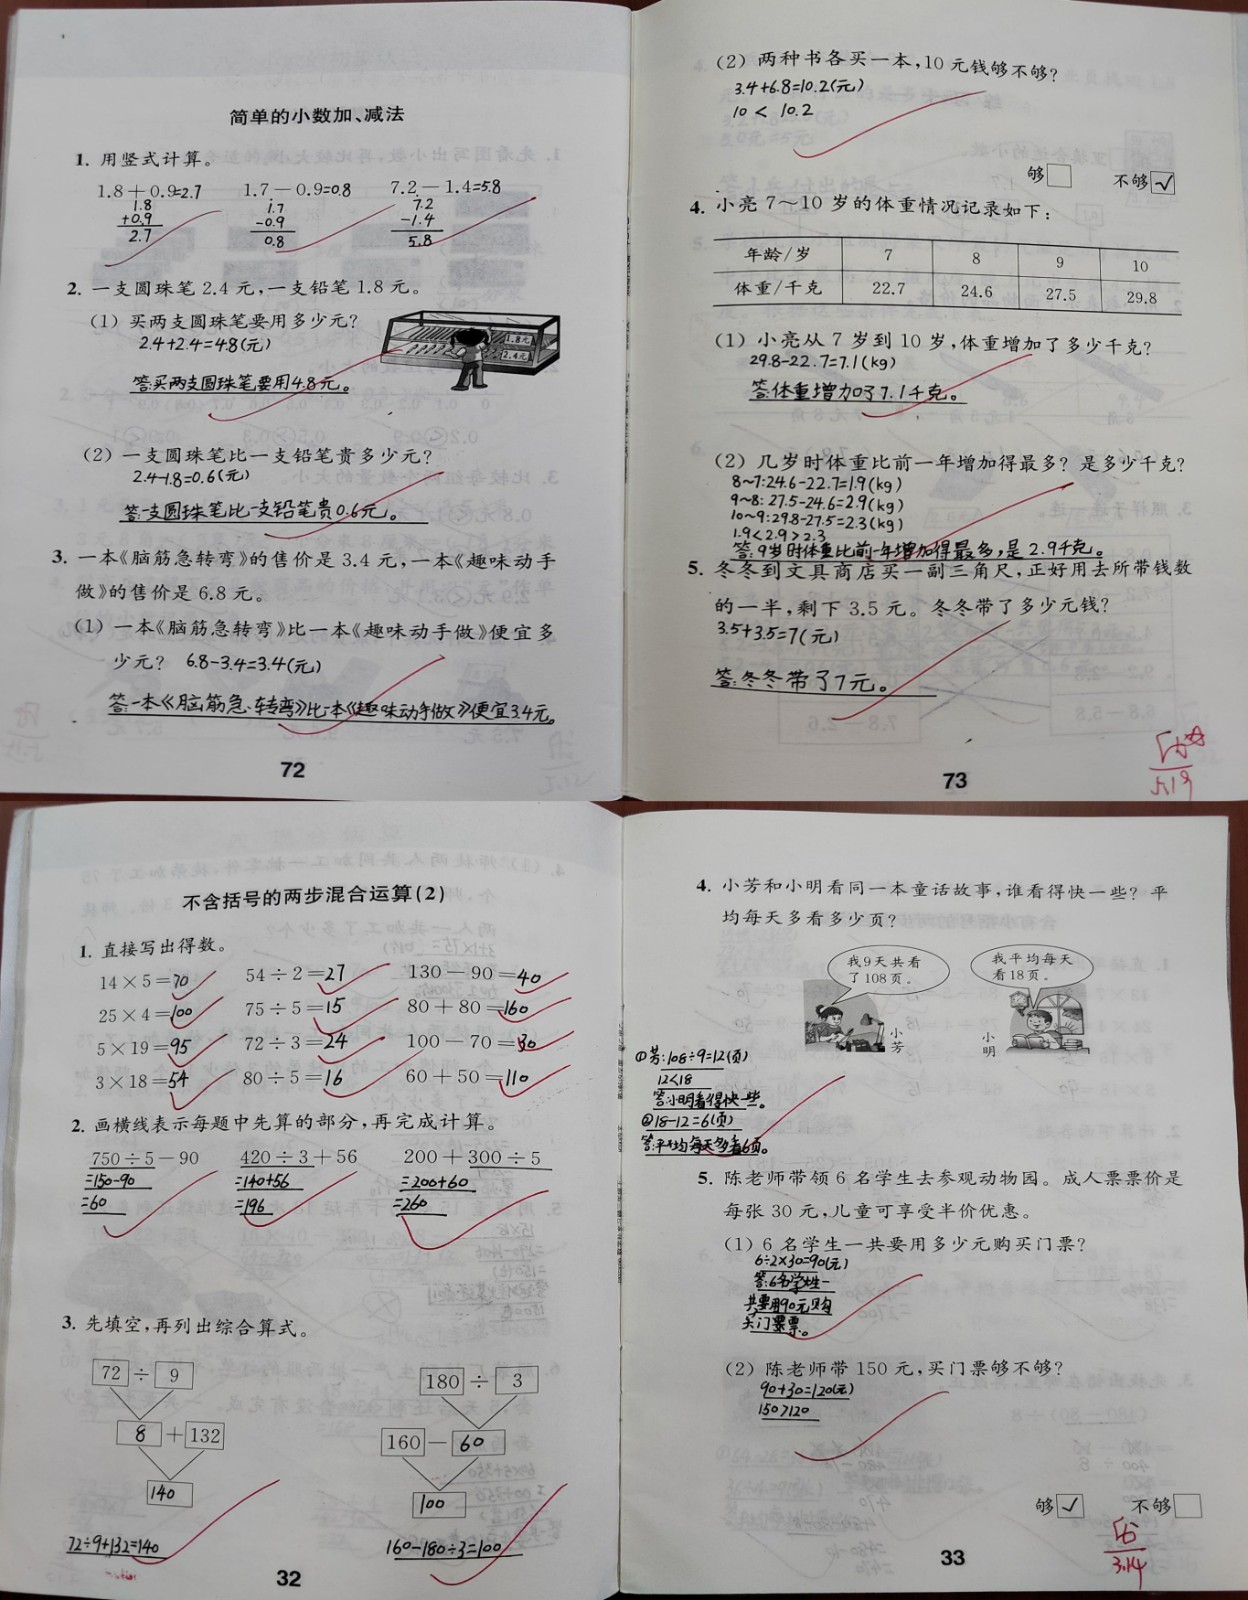 简单的小数加、减法
1. 用竖式计算。
1.8+0.9=2.7 1.7-0.9=0.8 7.2-1.4=5.8
1.8 1.7 7.2
+0.9 -0.9 -1.4
2.7 0.8 5.8
2. 一支圆珠笔 2.4 元,一支铅笔 1.8 元。
(1) 买两支圆珠笔要用多少元?
2.4+2.4=4.8(元)
1.8元
2.4元
答:买两支圆珠笔要用4.8元。
(2) 一支圆珠笔比一支铅笔贵多少元?
2.4-1.8=0.6(元)
答:一支圆珠笔比一支铅笔贵0.6元。
3. 一本《脑筋急转弯》的售价是 3.4 元,一本《趣味动手
做》的售价是 6.8 元。
(1) 一本《脑筋急转弯》比一本《趣味动手做》便宜多
少元? 6.8-3.4=3.4(元)
答:一本《脑筋急转弯》比一本《趣味动手做》便宜3.4元。
72
(2) 两种书各买一本,10 元钱够不够?
3.4+6.8=10.2(元)
10 < 10.2
够□ 不够☑
4. 小亮 7～10 岁的体重情况记录如下:
年龄/岁 7 8 9 10
体重/千克 22.7 24.6 27.5 29.8
(1) 小亮从 7 岁到 10 岁,体重增加了多少千克?
29.8-22.7=7.1(kg)
答:体重增加了7.1千克。
(2) 几岁时体重比前一年增加得最多? 是多少千克?
8~7:24.6-22.7=1.9(kg)
9~8:27.5-24.6=2.9(kg)
10~9:29.8-27.5=2.3(kg)
1.9<2.9>2.3
答:9岁时体重比前一年增加得最多,是2.9千克。
5. 冬冬到文具商店买一副三角尺,正好用去所带钱数
的一半,剩下 3.5 元。冬冬带了多少元钱?
3.5+3.5=7(元)
答:冬冬带了7元。
73
5.19
不含括号的两步混合运算(2)
1. 直接写出得数。
14×5=70 54÷2=27 130-90=40
25×4=100 75÷5=15 80+80=160
5×19=95 72÷3=24 100-70=30
3×18=54 80÷5=16 60+50=110
2. 画横线表示每题中先算的部分,再完成计算。
750÷5-90 420÷3+56 200+300÷5
=150-90 =140+56 =200+60
=60 =196 =260
3. 先填空,再列出综合算式。
72 ÷ 9 180 ÷ 3
8 + 132 160 - 60
140 100
72÷9+132=140 160-180÷3=100
32
4. 小芳和小明看同一本童话故事,谁看得快一些? 平
均每天多看多少页?
我9天共看
了108页。
我平均每天
看18页。
小芳
小明
①芳:108÷9=12(页)
12<18
答:小明看得快一些。
②18-12=6(页)
答:平均每天多看6页。
5. 陈老师带领 6 名学生去参观动物园。成人票票价是
每张 30 元,儿童可享受半价优惠。
(1) 6 名学生一共要用多少元购买门票?
6÷2×30=90(元)
答:6名学生一
共要用90元购
买门票。
(2) 陈老师带 150 元,买门票够不够?
90+30=120(元)
150>120
够☑ 不够□
33
3.14